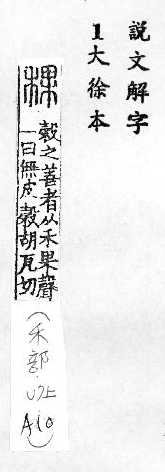 説文解字
1大徐本
稞
穀之善者从禾果聲
一曰無皮穀胡瓦切
(禾部.七上
A10)